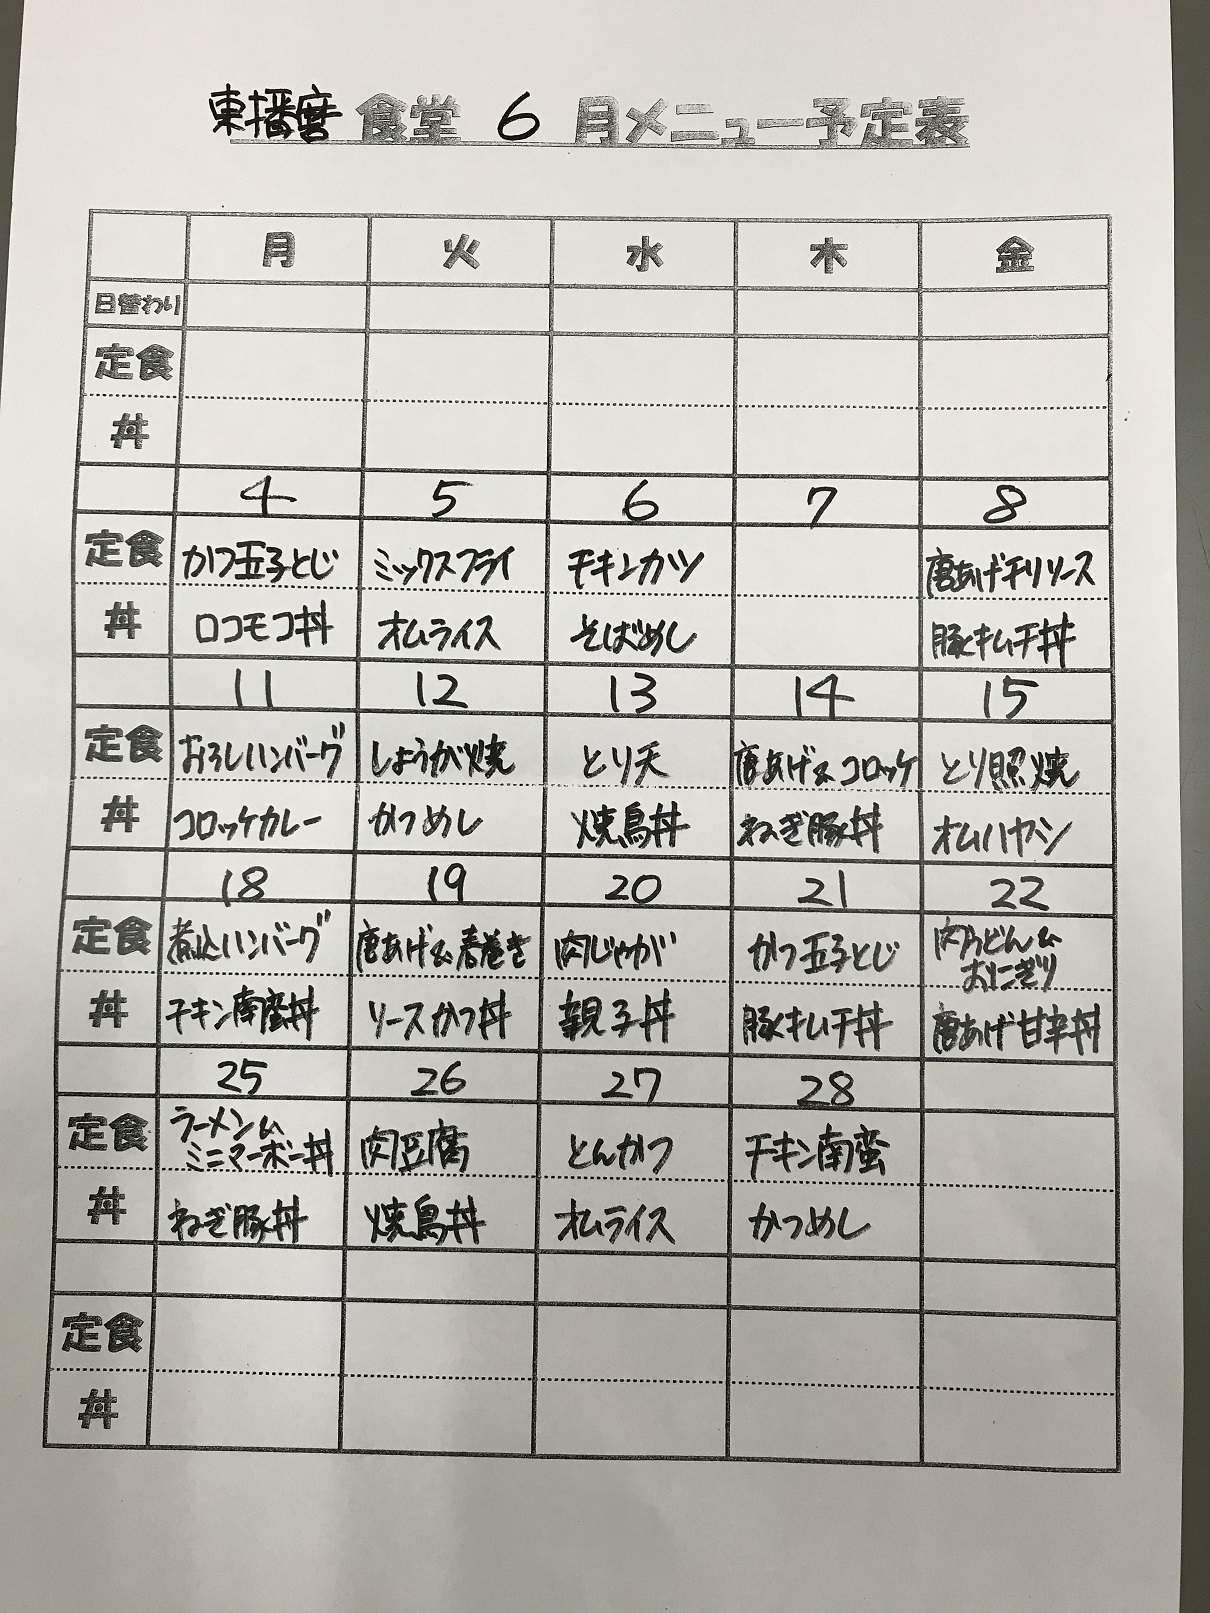 東播磨 食堂 6 月メニュー予定表
月 火 水 木 金
日替わり
定食
丼
4 5 6 7 8
定食 かつ玉子とじ ミックスフライ チキンカツ 唐あげチリソース
丼 ロコモコ丼 オムライス そばめし 豚キムチ丼
11 12 13 14 15
定食 おろしハンバーグ しょうが焼 とり天 唐あげ&コロッケ とり照焼
丼 コロッケカレー かつめし 焼鳥丼 ねぎ豚丼 オムハヤシ
18 19 20 21 22
定食 煮込ハンバーグ 唐あげ&春巻き 肉じゃが かつ玉子とじ 肉うどん&
おにぎり
丼 チキン南蛮丼 ソースかつ丼 親子丼 豚キムチ丼 唐あげ甘辛丼
25 26 27 28
定食 ラーメン&
ミニマーボー丼 肉豆腐 とんかつ チキン南蛮
丼 ねぎ豚丼 焼鳥丼 オムライス かつめし
定食
丼